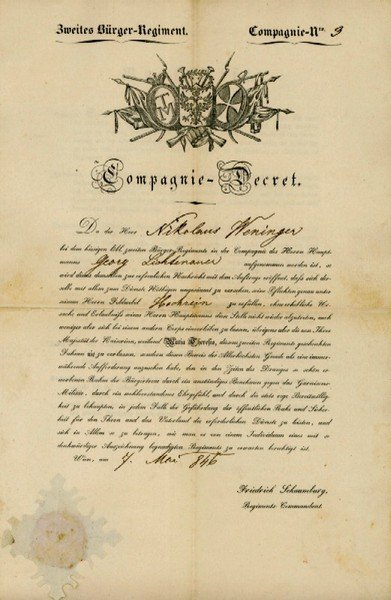 Zweites Bürger-Regiment. Compagnie-Nro. 9
Compagnie-Decret.
Da der Herr Nikolaus Weninger
bei dem hiesigen löbl. zweiten Bürger-Regimente in der Compagnie des Herrn Haupt-
manns Georg aufgenommen worden ist, so
wird dieses demselben zur erforderlichen Nachricht mit dem Auftrage eröffnet, daß sich der-
selbe mit allem zum Dienst Nöthigen ungesäumt zu versehen, seine Pflichten genau unter
seinem Herrn Feldwebel zu erfüllen, ohne erhebliche Ur-
sache und Erlaubniß eines Herrn Hauptmanns dem Stelle nicht wieder abzutreten, noch
weniger aber sich bei einem andern Corps einverleiben zu lassen, übrigens aber die von Ihrer
Majestät der Kaiserin, weiland Maria Theresia, diesem zweiten Regimente geschenkten
Fahnen nie zu verlassen, sondern diesen Beweis der Allerhöchsten Gnade als eine immer-
währende Aufforderung anzusehen habe, den in den Zeiten des Dranges so schön er-
worbenen Ruhm des Bürgerkorps durch ein anständiges Benehmen gegen das Garnisons-
Militär, durch ein wohlverstandenes Ehrgefühl, und durch die stets rege Bereitwillig-
keit zu behaupten, in jedem Falle der Gefährdung der öffentlichen Ruhe und Sicher-
heit für den Thron und das Vaterland die erforderlichen Dienste zu leisten, und
sich in Allem so zu betragen, wie man es von einem Individuum eines mit so
denkwürdiger Auszeichnung begnadigten Regiments zu erwarten berechtigt ist.
Wien, am 7. Mai 846
Friedrich Schaumburg,
Regiments-Commandant.